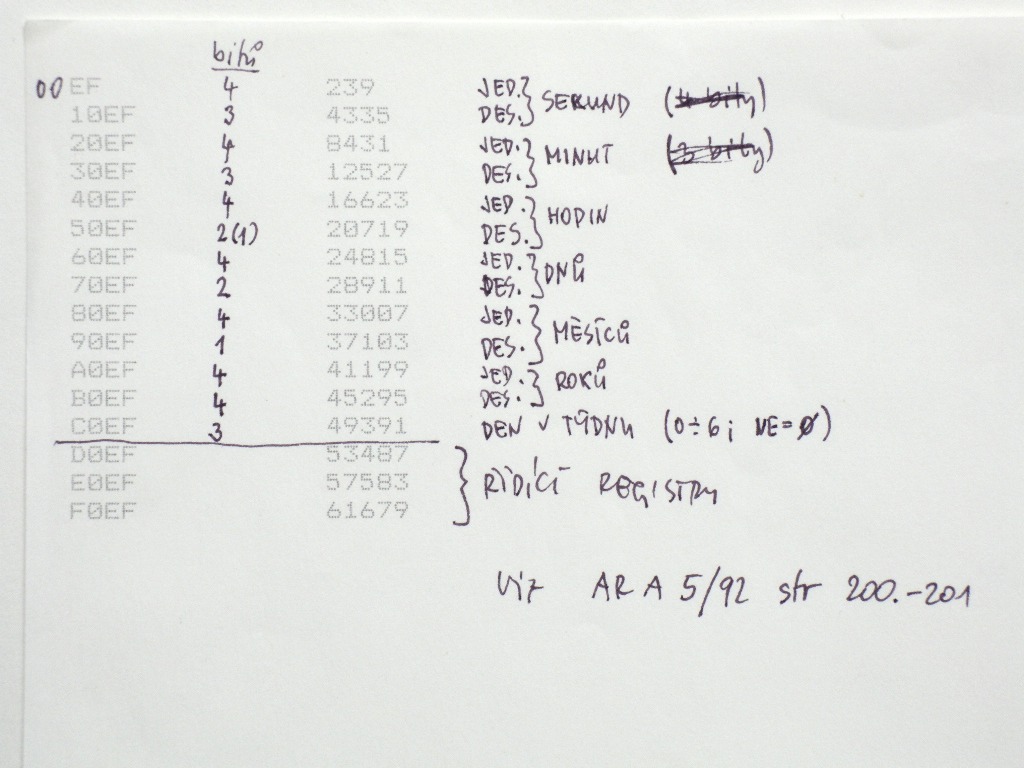 bitů
00 EF 4 239 JED. } SEKUND (4 bity)
10EF 3 4335 DES.
20EF 4 8431 JED. } MINUT (3 bity)
30EF 3 12527 DES.
40EF 4 16623 JED. } HODIN
50EF 2(1) 20719 DES.
60EF 4 24815 JED. } DNŮ
70EF 2 28911 DES.
80EF 4 33007 JED. } MĚSÍCŮ
90EF 1 37103 DES.
A0EF 4 41199 JED. } ROKŮ
B0EF 4 45295 DES.
C0EF 3 49391 DEN V TÝDNU (0÷6; NE=0)
D0EF 53487
E0EF 57583 } ŘÍDÍCÍ REGISTRY
F0EF 61679
Viz AR A 5/92 str 200.-201